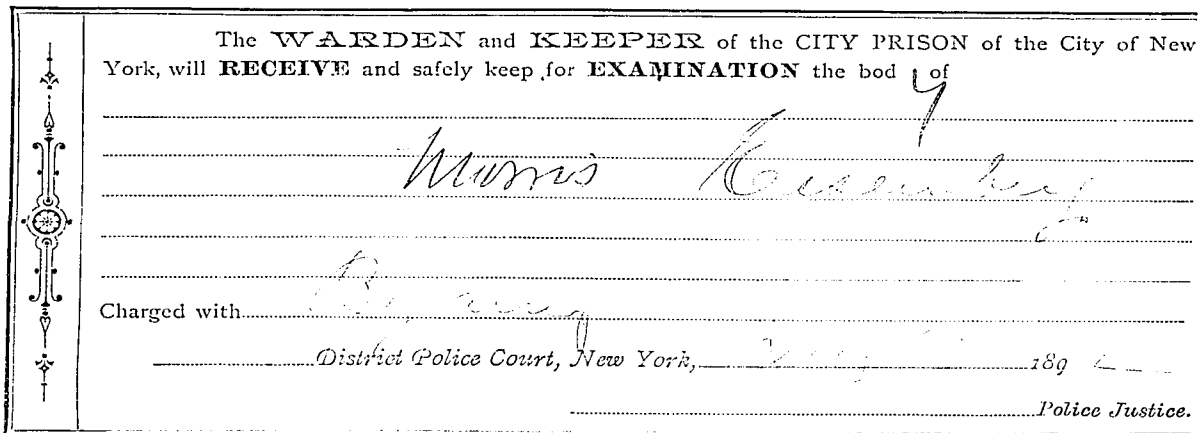 The WARDEN and KEEPER of the CITY PRISON of the City of New
York, will RECEIVE and safely keep for EXAMINATION the body of
Morris
Charged with
District Police Court, New York, 189
Police Justice.